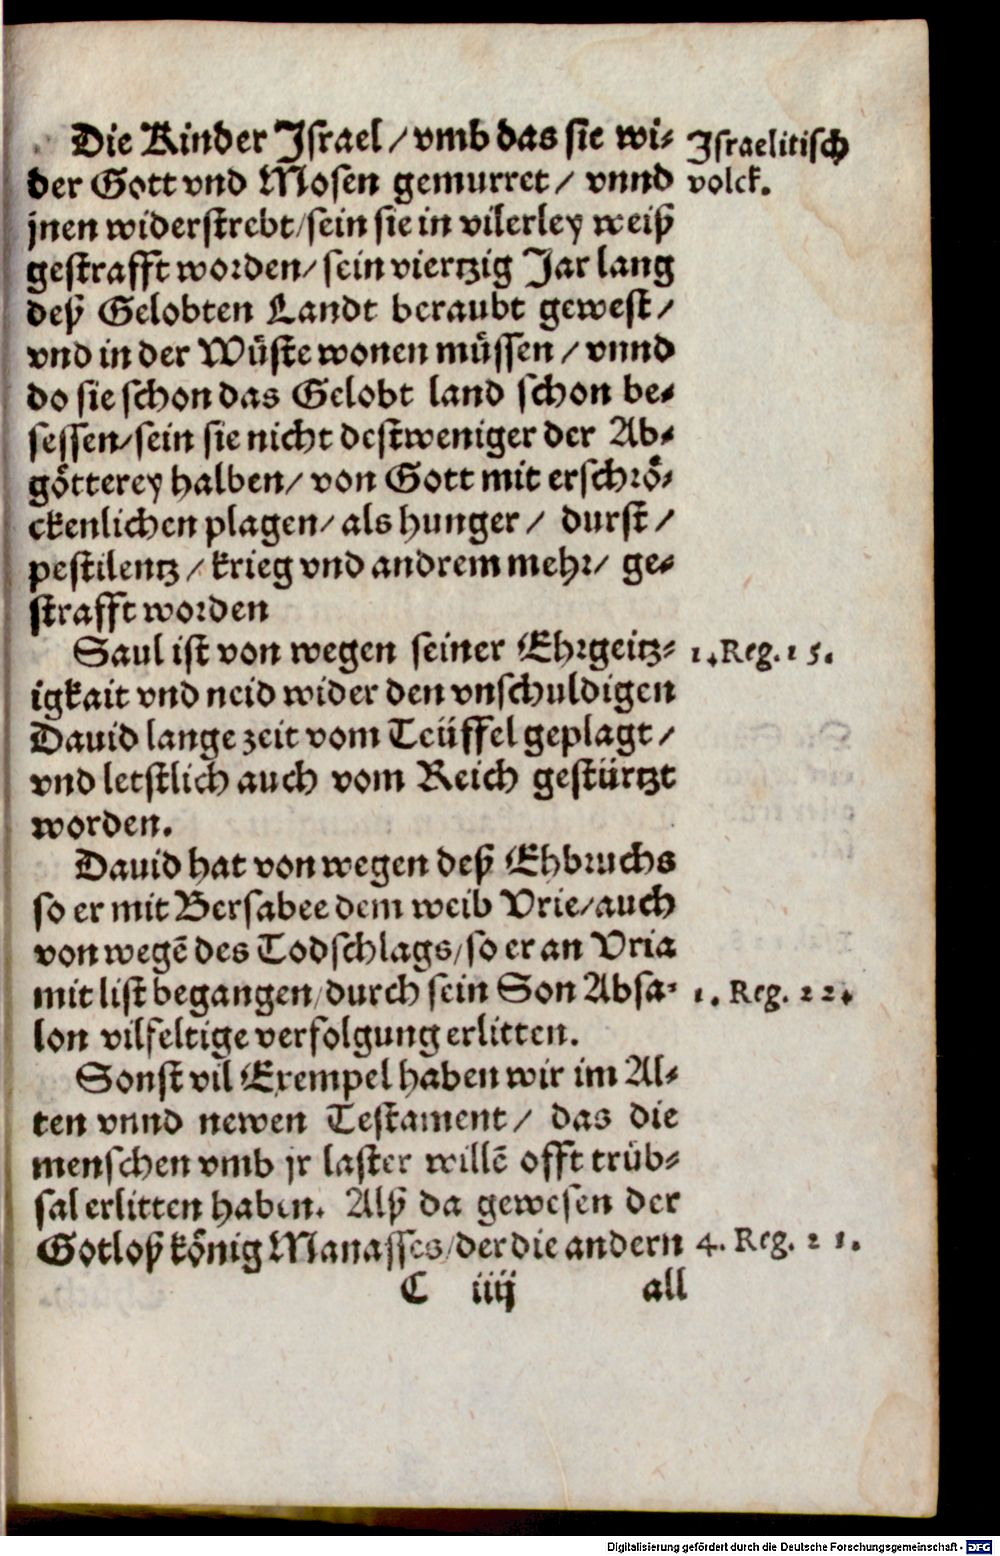 Die Kinder Israel / vmb das sie wi-
Israelitisch
der Gott vnd Mosen gemurret / vnnd
volck.
jnen widerstrebt / sein sie in vilerley weiß
gestrafft worden / sein viertzig Jar lang
deß Gelobten Landt beraubt gewest /
vnd in der Wüste wonen müssen / vnnd
do sie schon das Gelobt land schon be-
sessen / sein sie nicht destweniger der Ab-
götterey halben / von Gott mit erschrö-
ckenlichen plagen / als hunger / durst /
pestilentz / krieg vnd andrem mehr / ge-
strafft worden
Saul ist von wegen seiner Ehrgeitz-
1. Reg. 15.
igkait vnd neid wider den vnschuldigen
Dauid lange zeit vom Teüffel geplagt /
vnd letstlich auch vom Reich gestürtzt
worden.
Dauid hat von wegen deß Ehbruchs
so er mit Bersabee dem weib Vrie / auch
von wegē des Todschlags / so er an Vria
mit list begangen / durch sein Son Absa-
1. Reg. 22.
lon vilfeltige verfolgung erlitten.
Sonst vil Exempel haben wir im Al-
ten vnnd newen Testament / das die
menschen vmb jr laster willē offt trüb-
sal erlitten haben. Alß da gewesen der
Gotloß könig Manasses / der die andern
4. Reg. 21.
C iiij
all
Digitalisierung gefördert durch die Deutsche Forschungsgemeinschaft - DFG